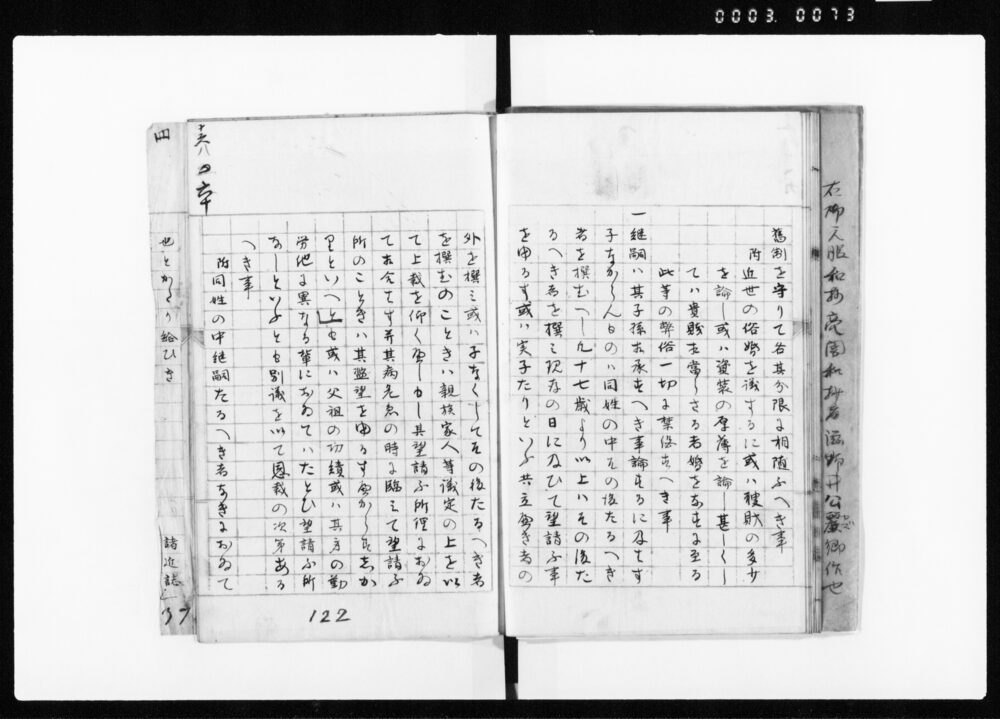 0003.0073
舊制を守りて各其分限に相随ふへき事
附近世の俗婚を議するに或ハ聘財の多少
を論し或ハ資装の厚薄を論し甚しく
てハ貴賤相当らさる者婚をなすに至る
此等の弊俗一切に禁絶すへき事
一継嗣ハ其子孫相承すへき事論するに及はす
子なからんものハ同姓の中その後たるへき
者を撰むへし凡十七歳より以上ハその後た
るへき者を撰ミ現存の日に及ひて望請ふ事
をゆるす或ハ実子たりといふ共立へき者の
外を撰ミ或ハ子なくしてその後たるへき者
を撰むのことき ハ親族家人等議定の上を以
て上裁を仰くへしもし其望請ふ所理におゐ
て相合す并其病危急の時に臨ミて望請ふ
所のことき ハ其濫望をゆるすへからすしか
りといへとも或ハ父祖の功績或ハ其身の勤
労他に異なる輩におゐていたとひ望請ふ所
なしといふとも別議を以て恩裁の次第ある
へき事
附同姓の中継嗣たるへき者なきにおゐて
122
四
也とかたり給ひき
諸近誌
37